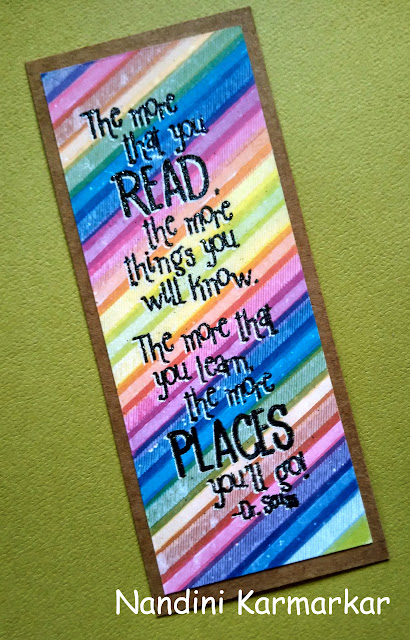 The more
that you
READ,
the more
things you
will know.
The more that
you learn,
the more
PLACES
you'll go!
-Dr. Seuss
Nandini Karmarkar